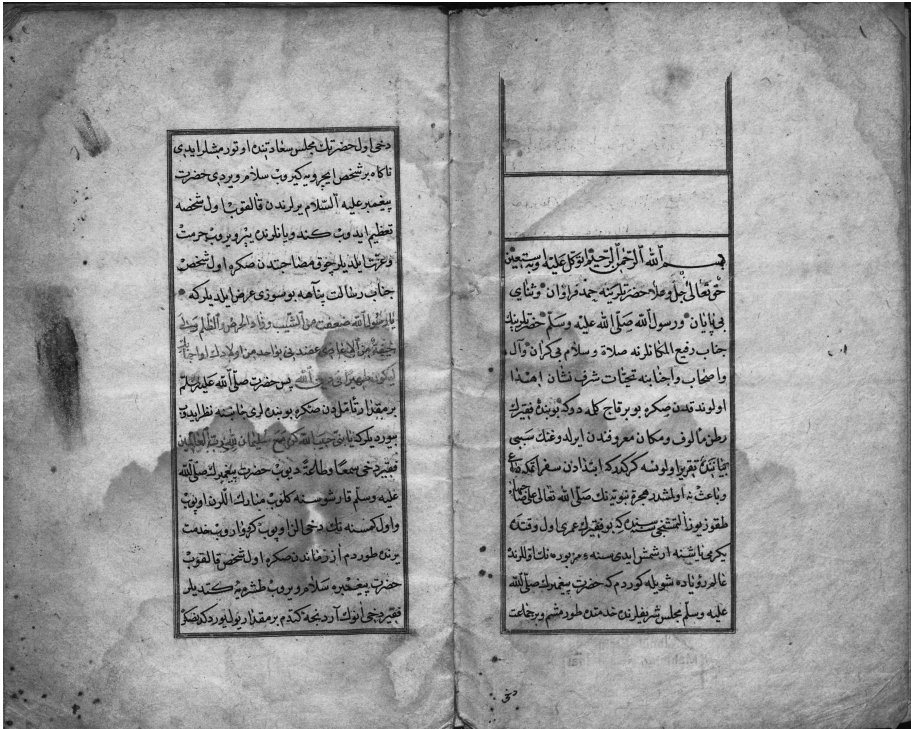 بسم الله الرحمن الرحيم اتوكل عليه وبه استعين
حق تعالى جل وعلا حضرتلرينه حمد فراوان وثناى
بى پايان ورسول الله صلى الله عليه وسلم حضرتلرينك
جناب رفيع المكانلرنه صلاة وسلام بى كران وآل
واصحاب واحبابنه تحيات شرف نشان اهدا
اولوندقدن صكره بو برقاج كلمه در كه بو بنده فقيرك
وطن مألوف ومكان معروفندن ايرلدوغنك سببى
تقرير اولونسه كركدر كه ابتدادن سفر
وباعث نه اولمشدر هجرة نبويه نك صلى الله تعالى على صاحبها
طقوز يوز التمشنجى سنه سيدر كه بو فقيرك عمرى اول وقتده
يكرمى ياشينه ارشمش ايدى سنهء مزبوره نك اوللرنده
عالم رؤياده شويله كوردم كه حضرت پيغمبرك صلى الله
عليه وسلم مجلس شريفلرنده خدمتده طورمشم وبر جماعت
دخى
دخى اول حضرتك مجلس سعادتنده اوتورمشلر ايدى
ناكاه بر شخص ايچرويه كيروب سلام ويردى حضرت
پيغمبر عليه السلام يرلرندن قالقوب اول شخصه
تعظيم ايدوب كندو يانلرنده ير ويروب حرمت
وعزت ايلديلر چوق مصاحبتدن صكره اول شخص
جناب رسالت پناهه بو سوزى عرض ايلديلر كه
يا رسول الله ضعفت من الشيب وزاد المرض والظلم
من عندى بنى بواحد من اولادك
ليكون ظهيرا دخى الله پس حضرت صلى الله عليه وسلم
بر مقدار تأملدن صكره بو بنده لرى جانبنه نظر ايدوب
بيورديلر كه يا بنى الله قم مع سليمان لله رب العالمين
فقير دخى سمعا وطاعة ديوب حضرت پيغمبرك صلى الله
عليه وسلم قارشوسنه كلوب مبارك اللرن اوپوب
واول كمسنه نك دخى الن اوپوب كيرو واروب خدمت
يرنده طوردم از زماندنصكره اول شخص قالقوب
حضرت پيغمبره سلام ويروب طشره يه كتديلر
فقير دخى انوك آردنجه كتدم بر مقدار يول يوردكدنصكره